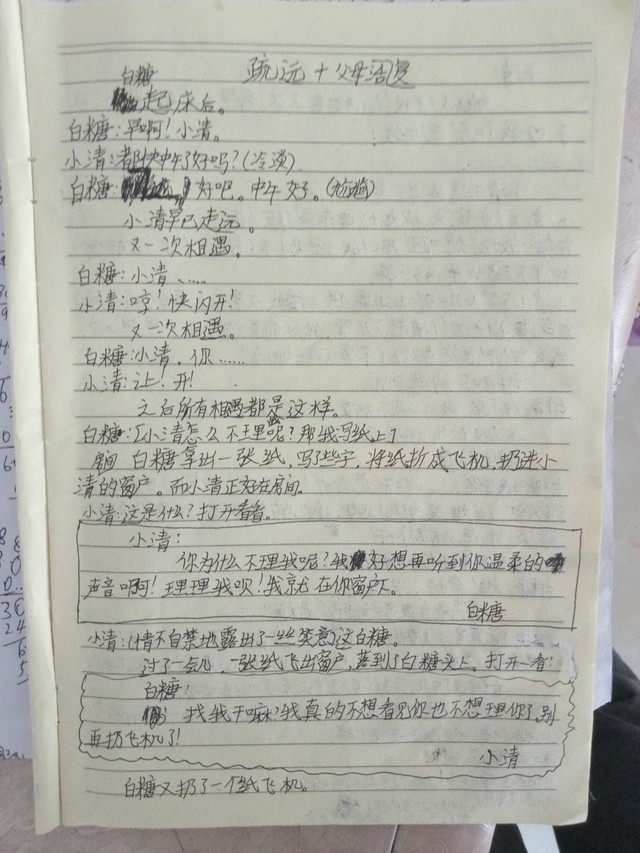 疏远+父母阔复
白糖
起床后。
白糖:早啊!小清。
小清:都快中午了好吗?(冷淡)
白糖: 好吧。中午好。(尴尬)
小清早已走远。
又一次相遇。
白糖:小清……
小清:哼!快闪开!
又一次相遇。
白糖:小清,你……
小清:让!开!
之后所有相遇都是这样。
白糖:[小清怎么不理我呢?那我写纸上]
房间 白糖拿出一张纸,写了些字,将纸折成飞机,扔进小
清的窗户。而小清正好在房间。
小清:这是什么?打开看看。
小清:
你为什么不理我呢?我好想再听到你温柔的
声音啊!理理我呗!我就在你窗户下。
白糖
小清:(情不自禁地露出了一丝笑意)这白糖。
过了一会儿,一张纸飞出窗户,落到了白糖头上。打开一看:
白糖:
找我干嘛?我真的不想看见你也不想理你了,别
再扔飞机了!
小清
白糖又扔了一个纸飞机。